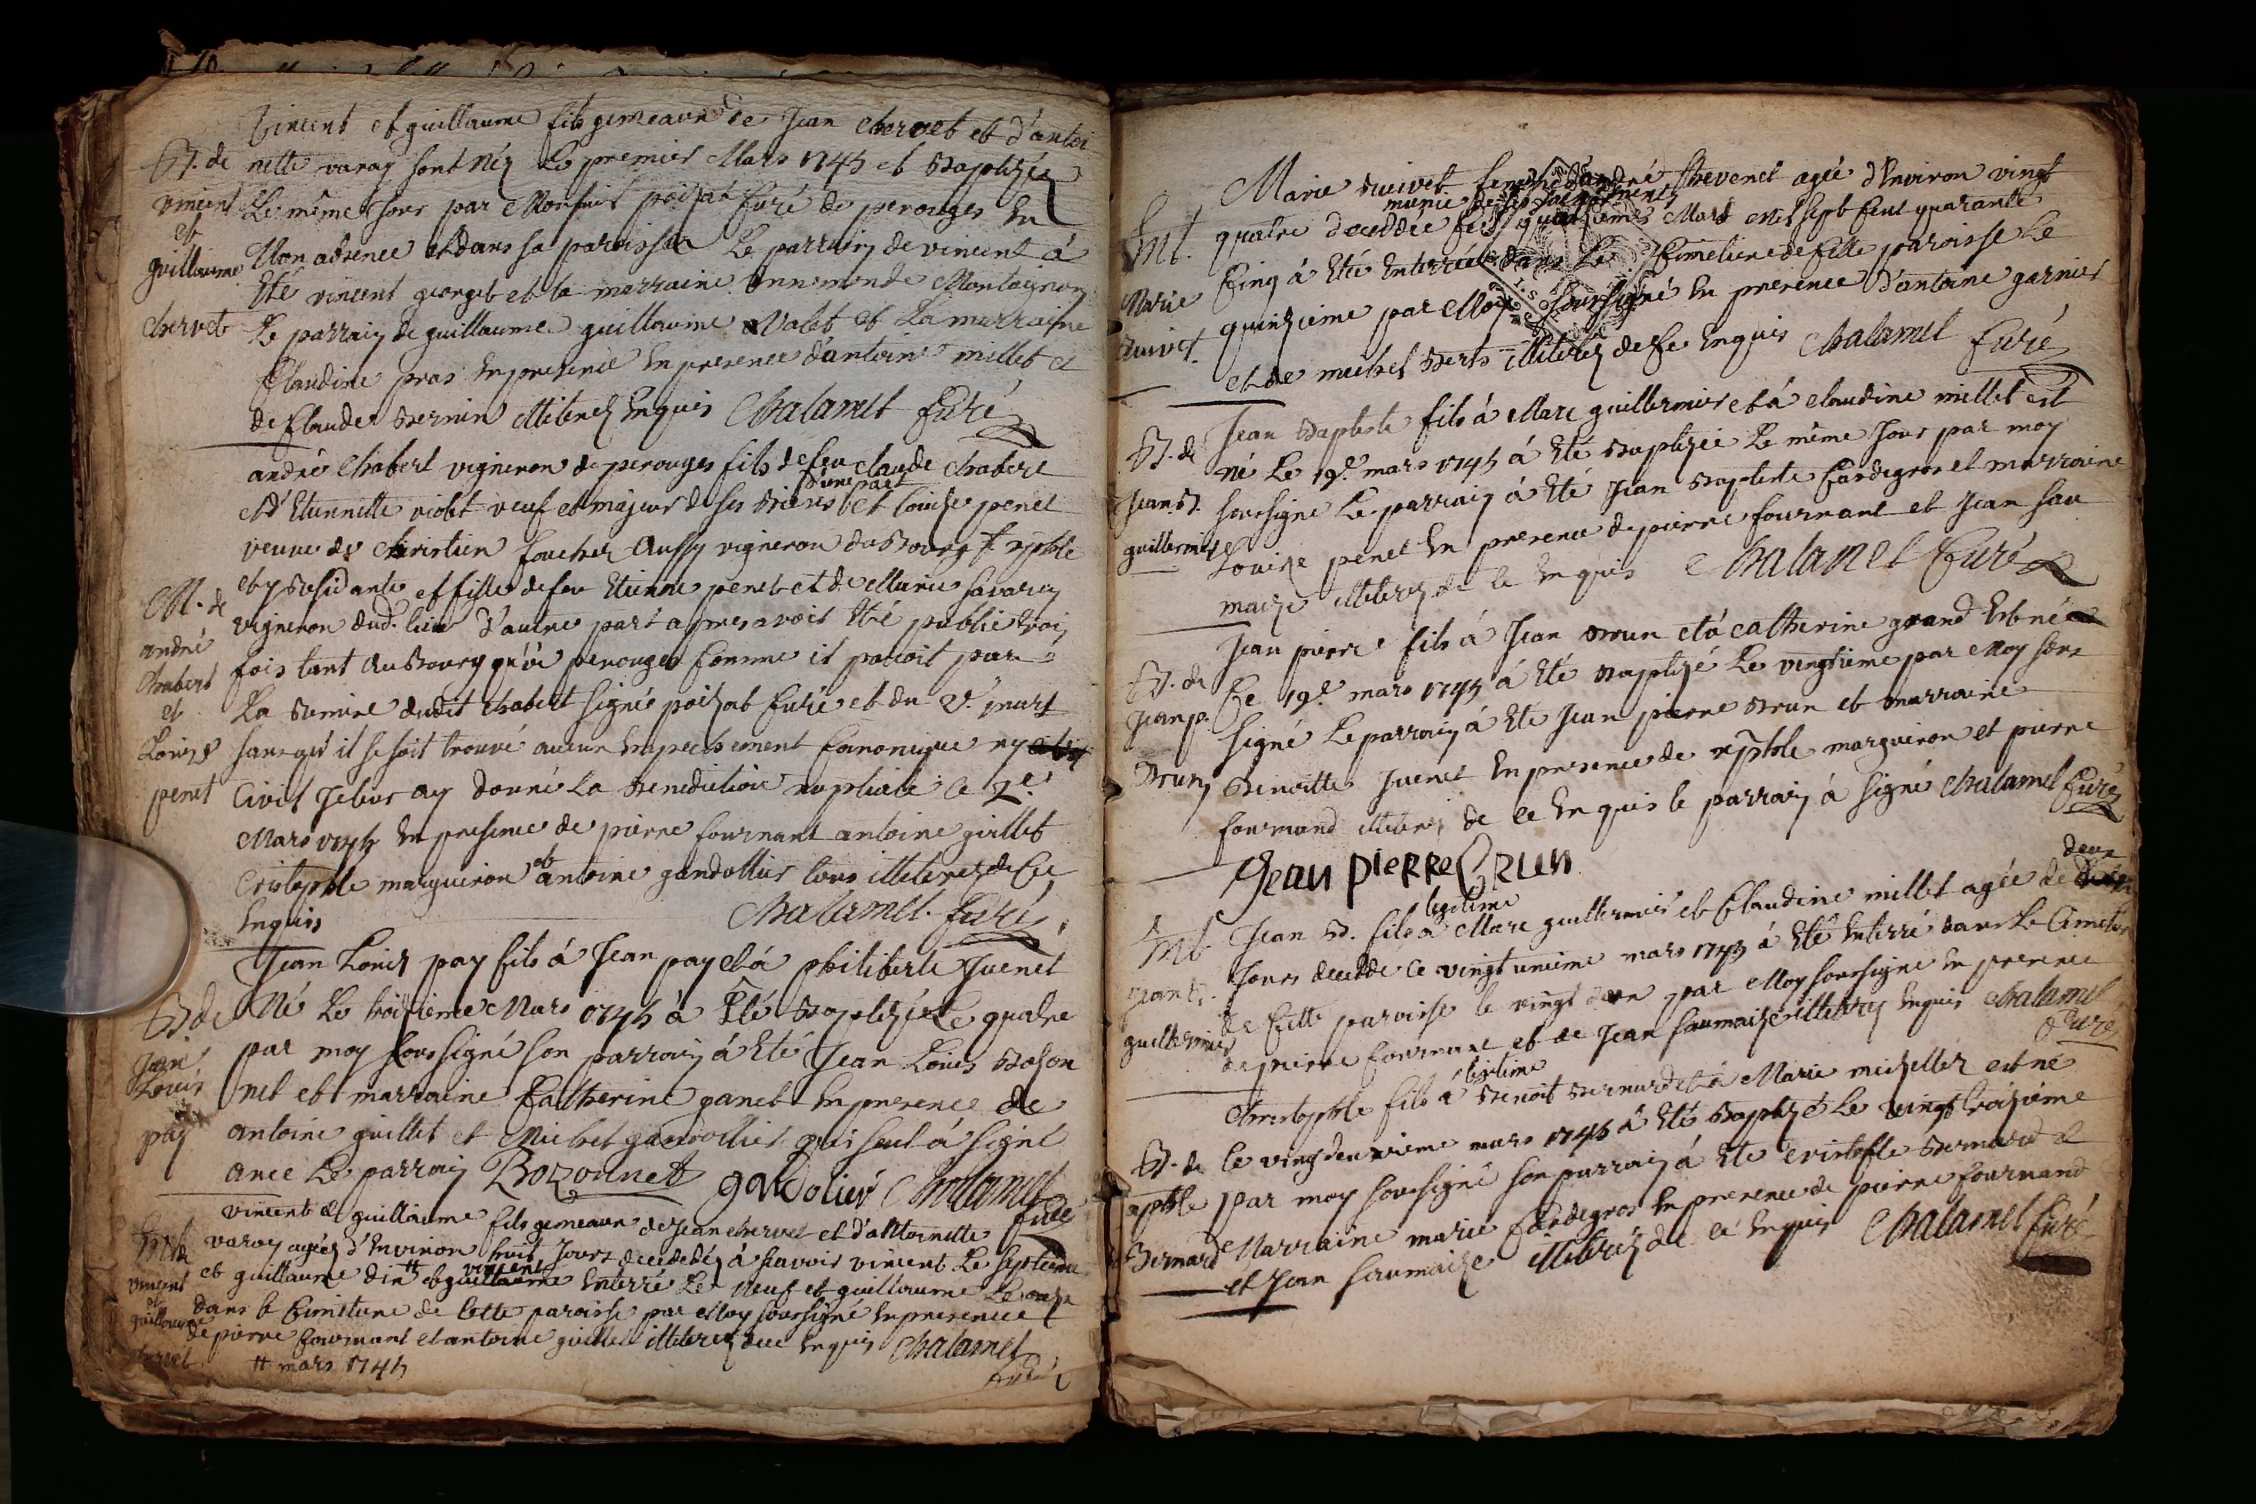 Vincent et guillaume fils gemeaux de Jean chervet et d'antoi
Bt. de
vincent
et
guillaume
chervet
nette varay sont néz Le premier Mars 1745 et Baptizéz
Le même Jour par Monsieur poizat Curé de perouges En
Mon absence et dans sa paroisse Le parrain de vincent à
Eté vincent georget et la marraine Ennemonde Montagnon
Le parrain de guillaume guillaume valet et La marraine
Claudine pras En presence En presence d'antoine millet et
de Claude Bernin illiterez Enquis Chalamel Curé
M. de
andré
Chabert
et
Louize
penet
andré Chabert vigneron de perouges fils de feu claude chabert
et d'Etiennette violet veuf et majeur de ses Biens d'une part et Louize penet
veuve de christien foucher Aussy vigneron du Bourg st xptole
et y Residante et fille de feu Etienne penet et de Marie savarin
vigneron dud. lieu d'autre part apres avoir Eté publié trois
fois tant au Bourg qu'à perouges Comme il paroit par
La Remise dudit chabert signée poizat Curé et du 2e. mars
sans qu'il se soit trouvé aucun Empechement Canonique ny
Civil Je leur ay donné La Benediction nuptiale ce 2e.
Mars 1745 En presence de pierre fournant antoine guillet
Cristophle margueiron et antoine gandollier tous illiterez de Ce
Enquis Chalamel. Curé
B. de
Jean
Louis
pay
Jean Louis pay fils à Jean pay et à philiberte Juenet
Né Le troizieme Mars 1745 à Eté Baptizé Le quatre
par moy sous signé son parrain à Eté Jean Louis Bozon
net et marraine Catherine ganet En presence de
antoine guillet et Michel gandollier qui seul à signé
avec Le parrain Bozonnet gandolier Chalamel
Curé
Ent. de
vincent
et
guillaume
chervet
vincent et guillaume fils gemeaux de Jean chervet et d'antoinette
varay agéz d'Environ huit Jours decedéz à scavoir vincent Le septieme
et guillaume dix # et vincent guillaume Enterré Le Neuf et guillaume Le onze
dans le Cimetiere de Cette paroisse par Moy soussigné En presence
de pierre fournant et antoine guillet illiterez de ce Enquis Chalamel
# mars 1745 Curé
Ent.
Marie
Juivet.
Marie Juivet femme d'andré Thevenet agée d'Environ vingt
munie de ses sacrements
quatre decedée Ce quatorzieme Mars mil sept Cent quarante
Cinq à Eté Enterrée dans Le Cimetiere de Cette paroisse Le
quinzieme par Moy soussigné En presence d'antoine garnier
et de michel Berts illiterez de Ce Enquis Chalamel Curé
Bt. de
Jean B.
guillermier
Jean Baptiste fils à Marc guillermier et à claudine millet est
né Le 19e. mars 1745 à Eté Baptizée Le même Jour par moy
soussigné Le parrain à Eté Jean Baptiste Cardegros et marraine
Louize penet En presence de pierre fournant et Jean sau
maize illiterez de ce Enquis Chalamel Curé
Bt. de
Jean p.
Brun
Jean pierre fils à Jean Brun et à catherine grand Est né
Ce 19e. mars 1745 à Eté Baptizé Le vingtieme par Moy sous
signé Le parrain à Eté Jean pierre Brun et marraine
Benoitte Juenet En presence de xptole margueiron et pierre
fournand illiterez de ce Enquis le parrain à signé Chalamel Curé
Jean PieRRe BRUN
Ent.
Jean B.
guillermier
Jean B. fils legitime à Marc guillermier et Claudine millet agée de deux
Jours decedé ce vingt unieme mars 1745 à Eté Enterré dans Le Cimetiere
de Cette paroisse le vingt deux par Moy soussigné En presence
de pierre fournant et de Jean saumaize illiterez Enquis Chalamel
Curé
Bt. de
xptole
Bernard
Christophle fils legitime à Benoit Bernard et à Marie mizeller est né
le vingt deuxieme mars 1745 à Eté Baptizé Le vingt troizieme
par moy soussigné son parrain à Eté cristofle Bernard et
Marraine marie Cardegros En presence de pierre fournand
et Jean saumaize illiterez de ce Enquis Chalamel Curé